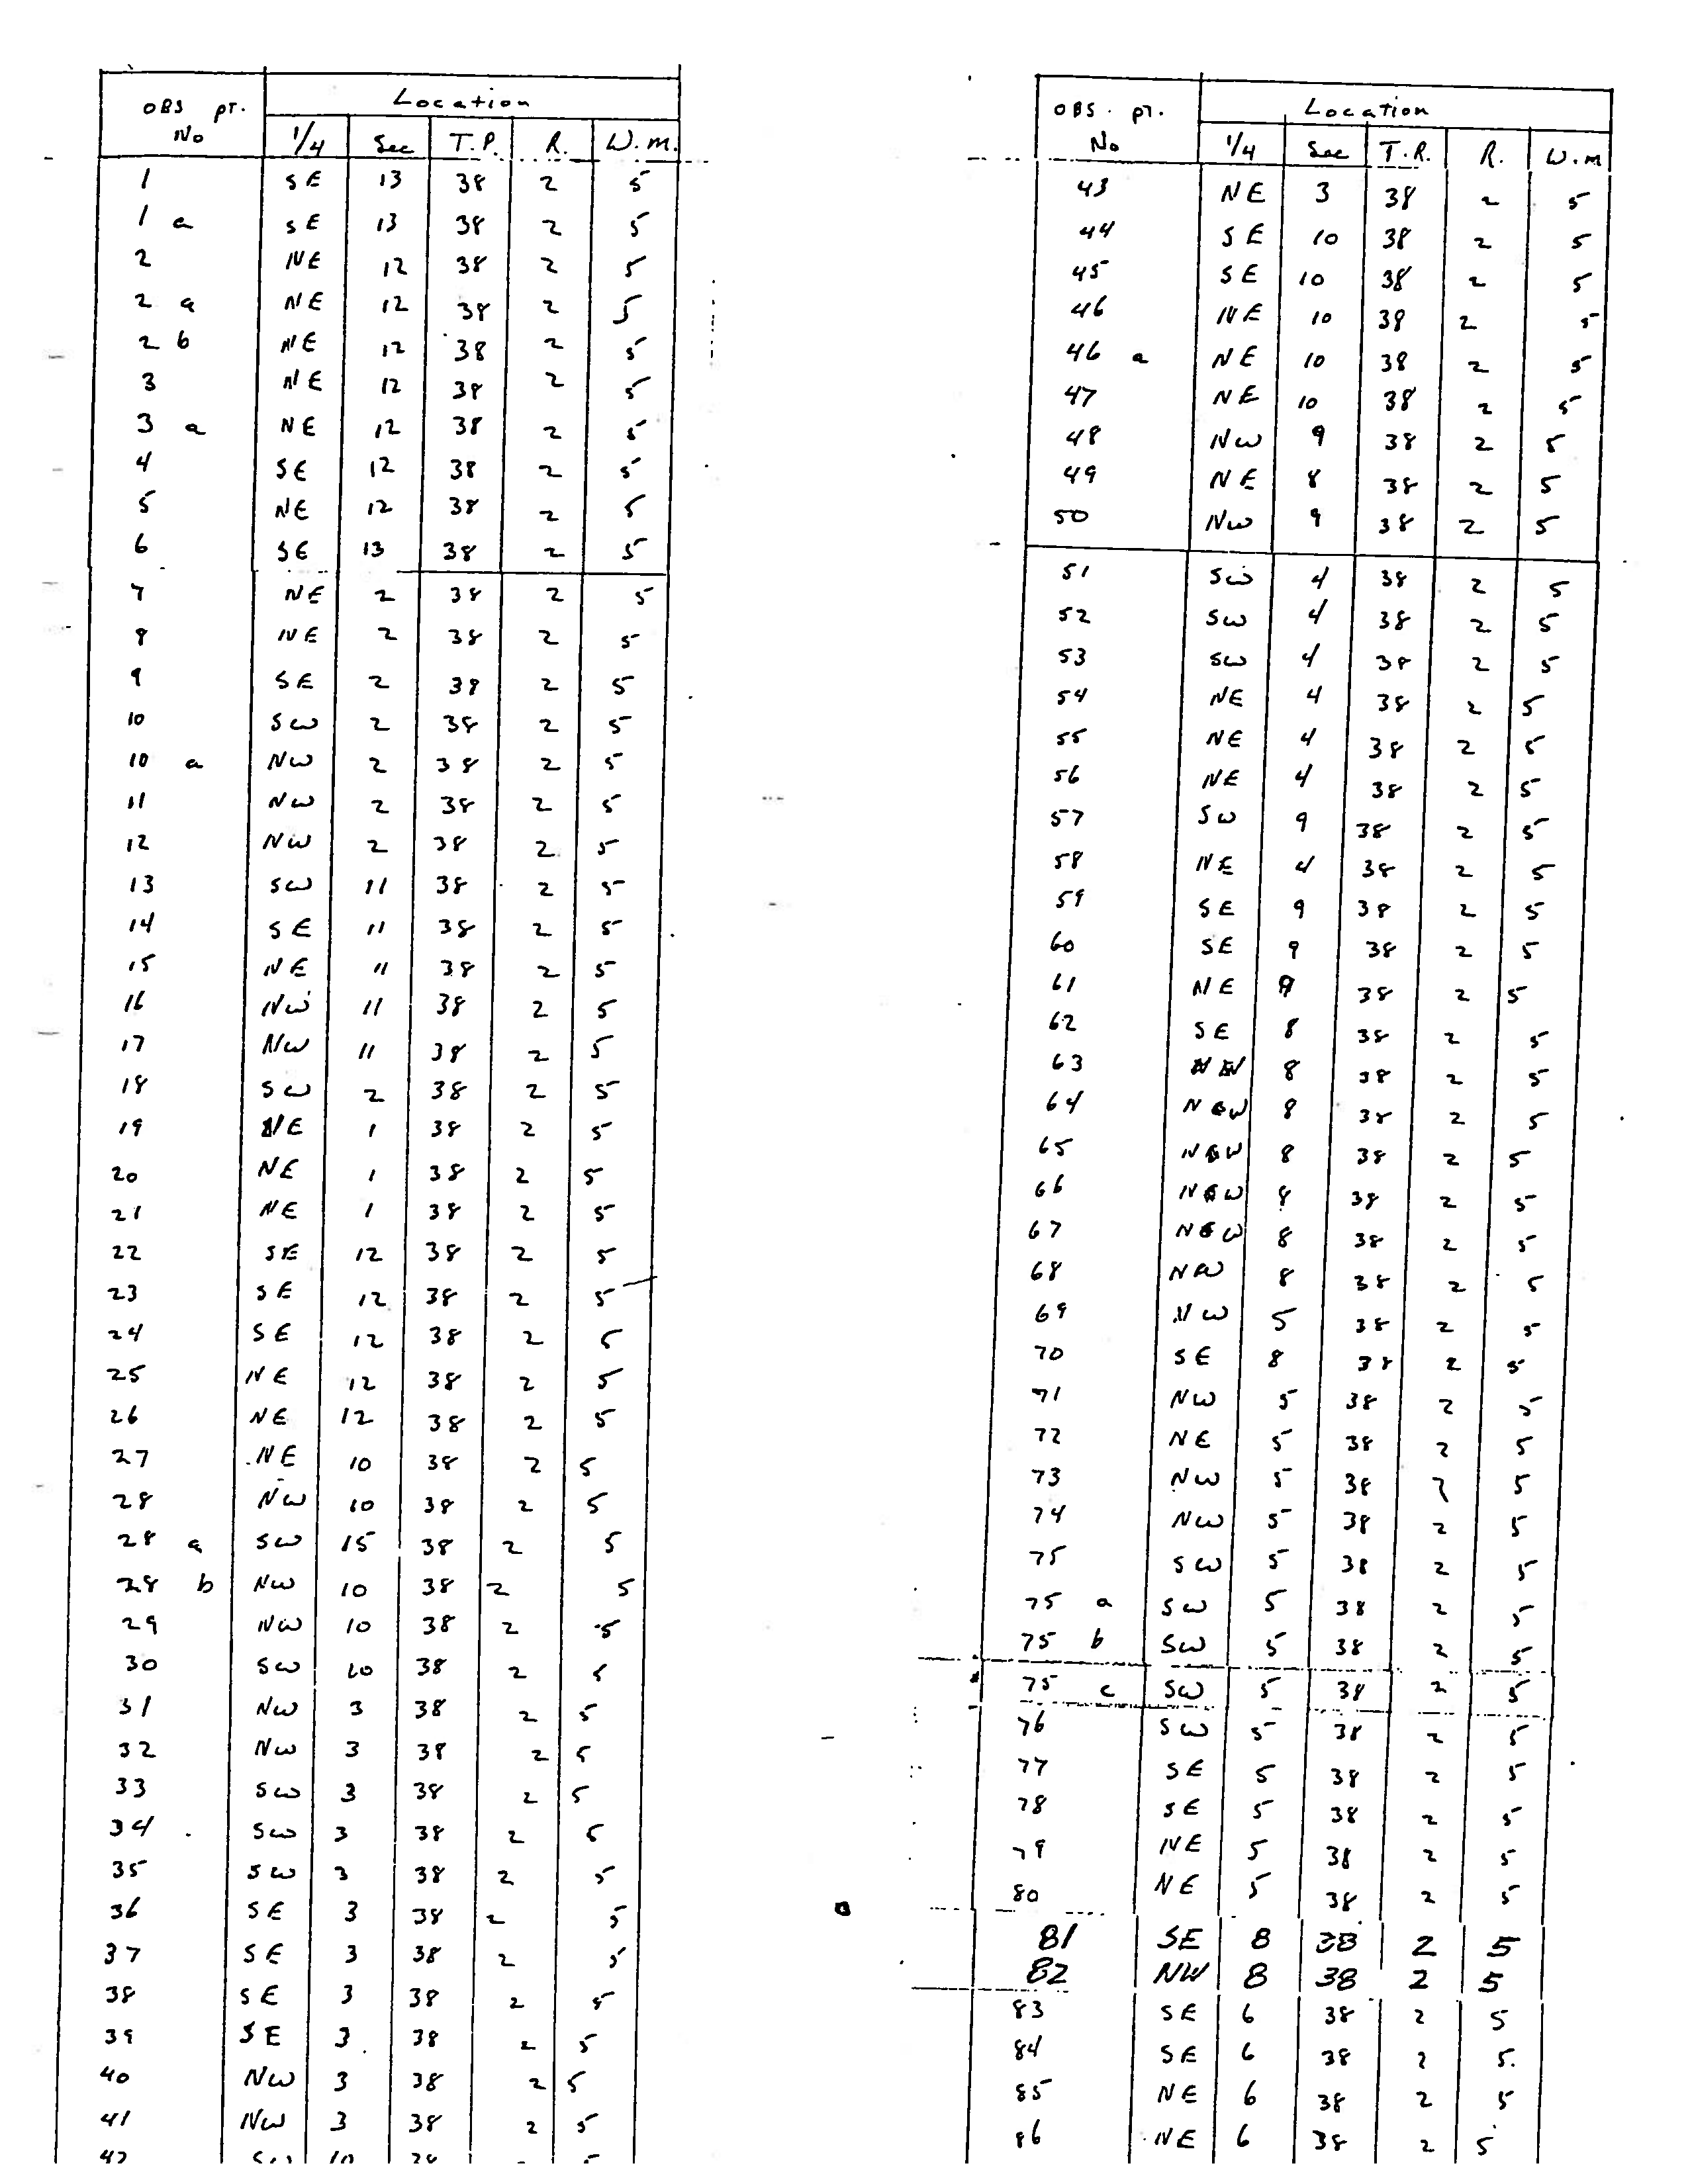 OBS pt. Location
No 1/4 Sec T.P. R. W.m.
1 SE 13 38 2 5
1 a SE 13 38 2 5
2 NE 12 38 2 5
2 a NE 12 38 2 5
2 b NE 12 38 2 5
3 NE 12 38 2 5
3 a NE 12 38 2 5
4 SE 12 38 2 5
5 NE 12 38 2 5
6 SE 13 38 2 5
7 NE 2 38 2 5
8 NE 2 38 2 5
9 SE 2 38 2 5
10 SW 2 38 2 5
10 a NW 2 38 2 5
11 NW 2 38 2 5
12 NW 2 38 2 5
13 SW 11 38 2 5
14 SE 11 38 2 5
15 NE 11 38 2 5
16 NW 11 38 2 5
17 NW 11 38 2 5
18 SW 2 38 2 5
19 NE 1 38 2 5
20 NE 1 38 2 5
21 NE 1 38 2 5
22 SE 12 38 2 5
23 SE 12 38 2 5
24 SE 12 38 2 5
25 NE 12 38 2 5
26 NE 12 38 2 5
27 NE 10 38 2 5
28 NW 10 38 2 5
28 a SW 15 38 2 5
28 b NW 10 38 2 5
29 NW 10 38 2 5
30 SW 10 38 2 5
31 NW 3 38 2 5
32 NW 3 38 2 5
33 SW 3 38 2 5
34 SW 3 38 2 5
35 SW 3 38 2 5
36 SE 3 38 2 5
37 SE 3 38 2 5
38 SE 3 38 2 5
39 SE 3 38 2 5
40 NW 3 38 2 5
41 NW 3 38 2 5
42 SW 10 38 2 5
OBS. pt. Location
No 1/4 Sec T.R. R. W.m
43 NE 3 38 2 5
44 SE 10 38 2 5
45 SE 10 38 2 5
46 NE 10 38 2 5
46 a NE 10 38 2 5
47 NE 10 38 2 5
48 NW 9 38 2 5
49 NE 8 38 2 5
50 NW 9 38 2 5
51 SW 4 38 2 5
52 SW 4 38 2 5
53 SW 4 38 2 5
54 NE 4 38 2 5
55 NE 4 38 2 5
56 NE 4 38 2 5
57 SW 9 38 2 5
58 NE 4 38 2 5
59 SE 9 38 2 5
60 SE 9 38 2 5
61 NE 9 38 2 5
62 SE 8 38 2 5
63 NW 8 38 2 5
64 NW 8 38 2 5
65 NW 8 38 2 5
66 NW 8 38 2 5
67 NW 8 38 2 5
68 NW 8 38 2 5
69 NW 5 38 2 5
70 SE 8 38 2 5
71 NW 5 38 2 5
72 NE 5 38 2 5
73 NW 5 38 2 5
74 NW 5 38 2 5
75 SW 5 38 2 5
75 a SW 5 38 2 5
75 b SW 5 38 2 5
75 c SW 5 38 2 5
76 SW 5 38 2 5
77 SE 5 38 2 5
78 SE 5 38 2 5
79 NE 5 38 2 5
80 NE 5 38 2 5
81 SE 8 38 2 5
82 NW 8 38 2 5
83 SE 6 38 2 5
84 SE 6 38 2 5.
85 NE 6 38 2 5
86 NE 6 38 2 5